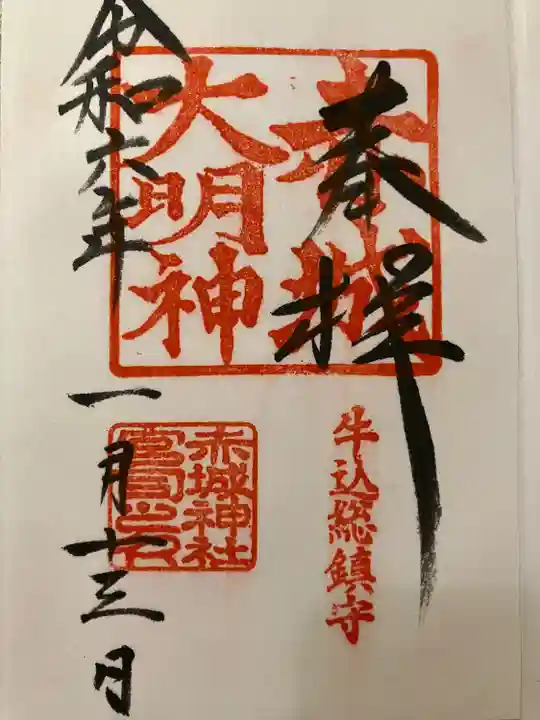 奉拝
赤城
大明神
牛込総鎮守
令和六年
一月十三日
赤城神社
宮司之印